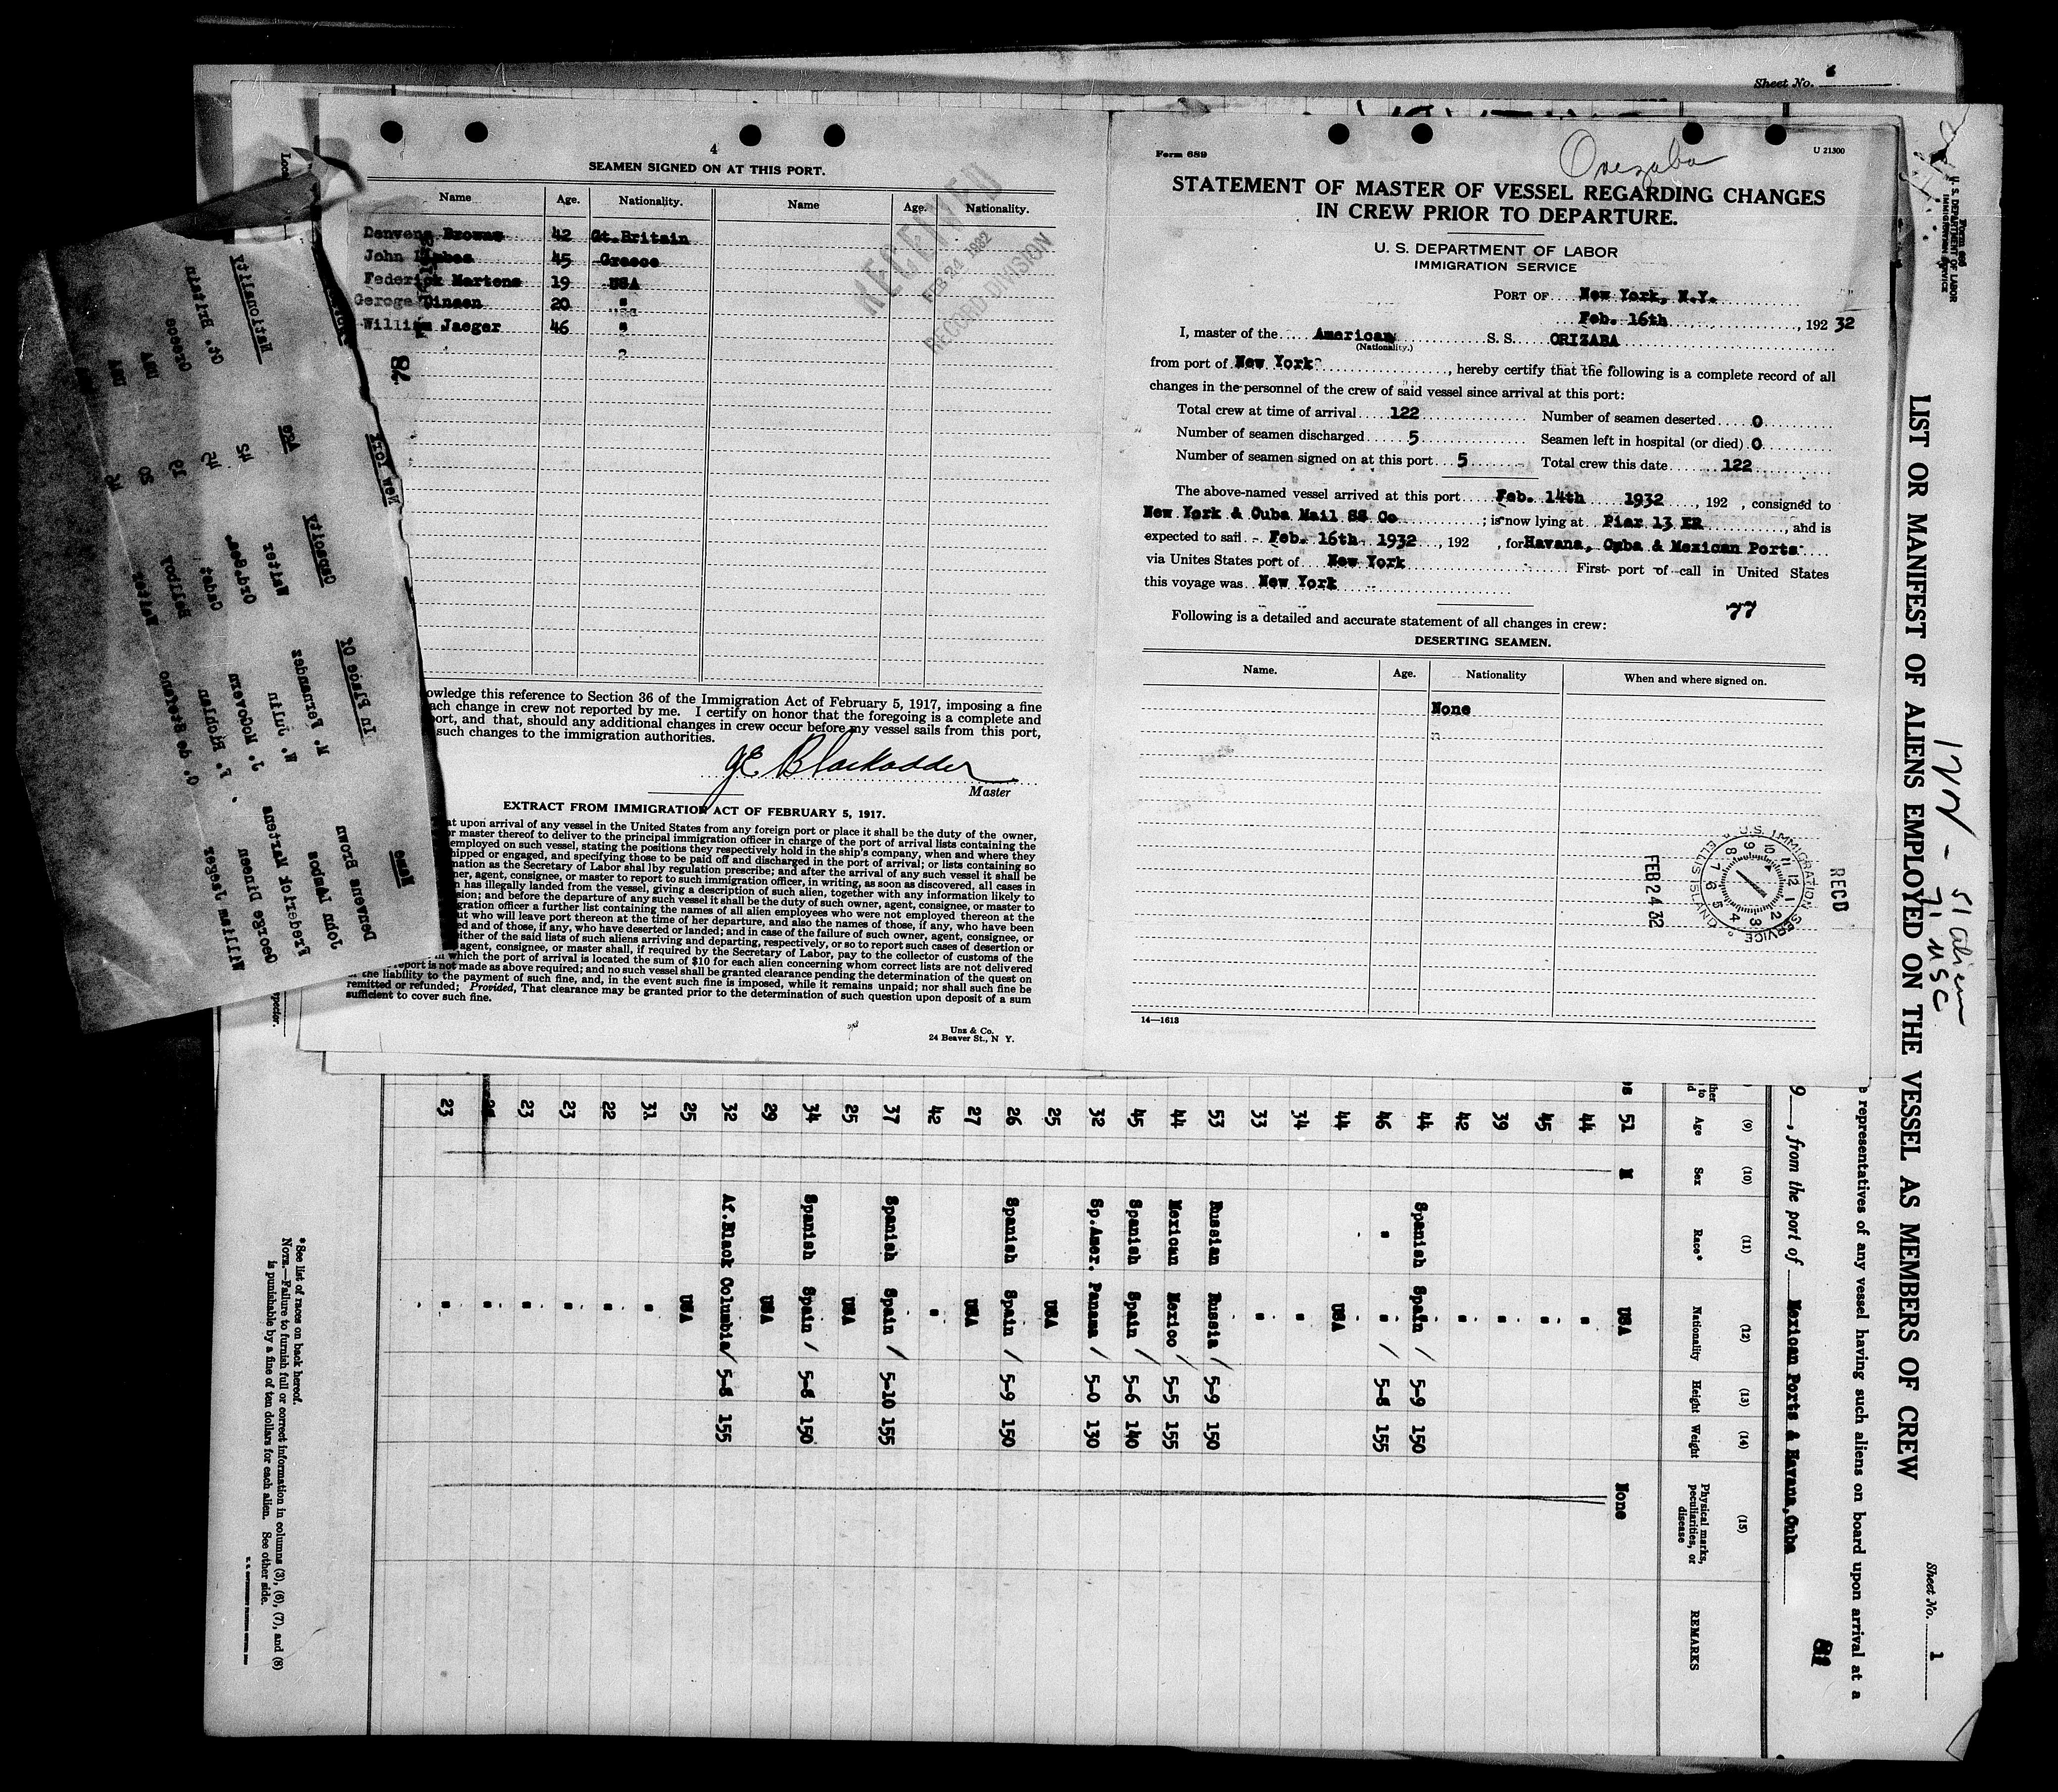 Sheet No. 6
4
SEAMEN SIGNED ON AT THIS PORT.
Name Age. Nationality. Name Age. Nationality.
Denvens Browns 42 Gt.Britain
John 45 Greece
Federick Martens 19 USA
Geroge Dinsen 20 "
William Jaeger 46 "
78
RECEIVED
FEB 24 1932
RECORD DIVISION
owledge this reference to Section 36 of the Immigration Act of February 5, 1917, imposing a fine
ach change in crew not reported by me. I certify on honor that the foregoing is a complete and
port, and that, should any additional changes in crew occur before my vessel sails from this port,
such changes to the immigration authorities.
JE Blackadder
Master
EXTRACT FROM IMMIGRATION ACT OF FEBRUARY 5, 1917.
at upon arrival of any vessel in the United States from any foreign port or place it shall be the duty of the owner,
or master thereof to deliver to the principal immigration officer in charge of the port of arrival lists containing the
employed on such vessel, stating the positions they respectively hold in the ship's company, when and where they
hipped or engaged, and specifying those to be paid off and discharged in the port of arrival; or lists containing so
mation as the Secretary of Labor shal lby regulation prescribe; and after the arrival of any such vessel it shall be
ner, agent, consignee, or master to report to such immigration officer, in writing, as soon as discovered, all cases in
n has illegally landed from the vessel, giving a description of such alien, together with any information likely to
sion; and before the departure of any such vessel it shall be the duty of such owner, agent, consignee, or master to
igration officer a further list containing the names of all alien employees who were not employed thereon at the
ut who will leave port thereon at the time of her departure, and also the names of those, if any, who have been
ed and of those, if any, who have deserted or landed; and in case of the failure of such owner, agent, consignee, or
either of the said lists of such aliens arriving and departing, respectively, or so to report such cases of desertion or
agent, consignee, or master shall, if required by the Secretary of Labor, pay to the collector of customs of the
in which the port of arrival is located the sum of $10 for each alien concerning whom correct lists are not delivered
report is not made as above required; and no such vessel shall be granted clearance pending the determination of the quest on
f the liability to the payment of such fine, and, in the event such fine is imposed, while it remains unpaid; nor shall such fine be
remitted or refunded; Provided, That clearance may be granted prior to the determination of such question upon deposit of a sum
sufficient to cover such fine.
Unz & Co.
24 Beaver St., N Y.
New York
Name Capacity Age Nationality In Place Of
Denvens Brown Waiter 42 Gt. Britain M. Fernandez
John Lambos Ord.Sea. 45 Greece W. Julin
Frederick Martens Cadet 19 USA J. McGovern
George Dineen Bellboy 20 USA F. Mihnlan
William Jaeger Waiter C. de Stefano
Form 689
Orizaba
U 21300
STATEMENT OF MASTER OF VESSEL REGARDING CHANGES
IN CREW PRIOR TO DEPARTURE.
U. S. DEPARTMENT OF LABOR
IMMIGRATION SERVICE
PORT OF New York, N.Y.
Feb. 16th, 192 32
I, master of the American S. S. ORIZABA
(Nationality.)
from port of New York, hereby certify that the following is a complete record of all
changes in the personnel of the crew of said vessel since arrival at this port:
Total crew at time of arrival 122 Number of seamen deserted 0
Number of seamen discharged 5 Seamen left in hospital (or died) 0
Number of seamen signed on at this port 5 Total crew this date 122
The above-named vessel arrived at this port Feb. 14th 1932, 192 , consigned to
New York & Cuba Mail SS Co ; is now lying at Piar 13 ER, and is
expected to sail Feb. 16th 1932, 192 , for Havana, Cuba & Mexican Ports
via Unites States port of New York First port of call in United States
this voyage was New York
77
Following is a detailed and accurate statement of all changes in crew:
DESERTING SEAMEN.
Name. Age. Nationality When and where signed on.
None
U.S. IMMIGRATION SERVICE ELLIS ISLAND
12 1 2 3 4 5 6 7 8 9 10 11
REC'D
FEB 24 32
14—1613
Form 689
U. S. DEPARTMENT OF LABOR
IMMIGRATION SERVICE
LIST OR MANIFEST OF ALIENS EMPLOYED ON THE VESSEL AS MEMBERS OF CREW
51 aliens
71 USC
Sheet No. 1
e representatives of any vessel having such aliens on board upon arrival at a
9 , from the port of Mexican Ports & Havana, Cuba
81
(9) (10) (11) (12) (13) (14) (15)
Age Sex Race* Nationality Height Weight Physical marks, peculiarities, or disease REMARKS
51 M USA None
44 "
45 "
39 "
42 "
44 Spanish Spain / 5-9 150
46 " " / 5-8 155
44 USA
34 "
33 "
53 Russian Russia / 5-9 150
44 Mexican Mexico / 5-5 155
45 Spanish Spain / 5-6 140
32 Sp.Amer. Panama / 5-0 130
25 USA
26 Spanish Spain / 5-9 150
27 USA
42 "
37 Spanish Spain / 5-10 155
25 USA
34 Spanish Spain / 5-8 150
29 USA
32 Af.Black Columbia / 5-8 155
25 USA
31 "
22 "
23 "
23 "
"
23 "
*See list of races on back hereof.
NOTE.—Failure to furnish full or correct information in columns (3), (6), (7), and (8)
is punishable by a fine of ten dollars for each alien. See other side.